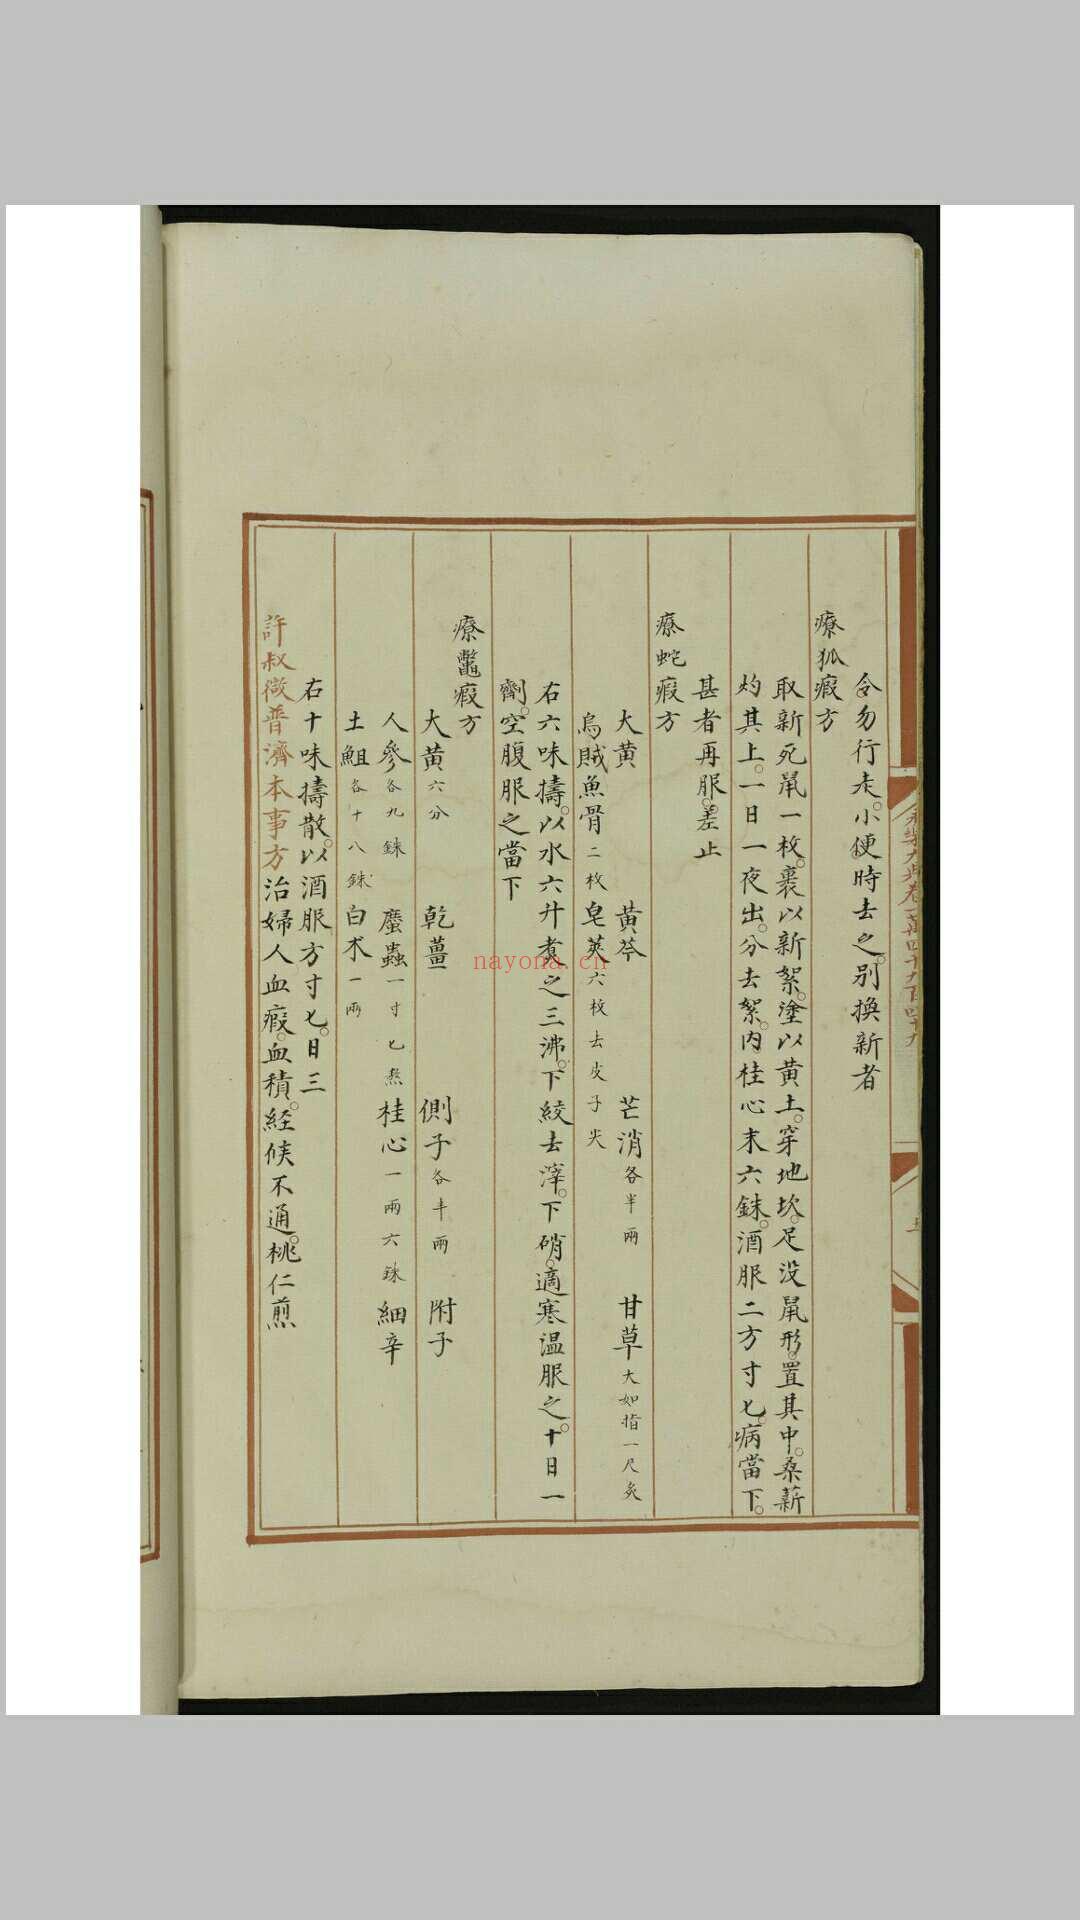 永樂大典卷一萬四千九百四十九
令勿行走。小便時去之。別換新者
療狐瘕方
取新死鼠一枚。裹以新絮。塗以黄土。穿地坎。足没鼠形。置其中。桑薪
灼其上。一日一夜出。分去絮。内桂心末六銖。酒服二方寸匕。病當下。
甚者再服。差止
療蛇瘕方
大黄 黄芩 芒消各半兩 甘草大如指一尺炙
烏賊魚骨二枚 皂莢六枚去皮子尖
右六味擣。以水六升煮之三沸。下絞去滓。下硝。適寒温服之。十日一
劑。空腹服之當下
療鼈瘕方
大黄六分 乾薑 側子各半兩 附子
人參各九銖 䗪蟲一寸匕熬 桂心一兩六銖 細辛
土䱉各十八銖 白术一兩
右十味擣散。以酒服方寸匕。日三
許叔微普濟本事方治婦人血瘕。血積。経候不通。桃仁煎
nayona.cn